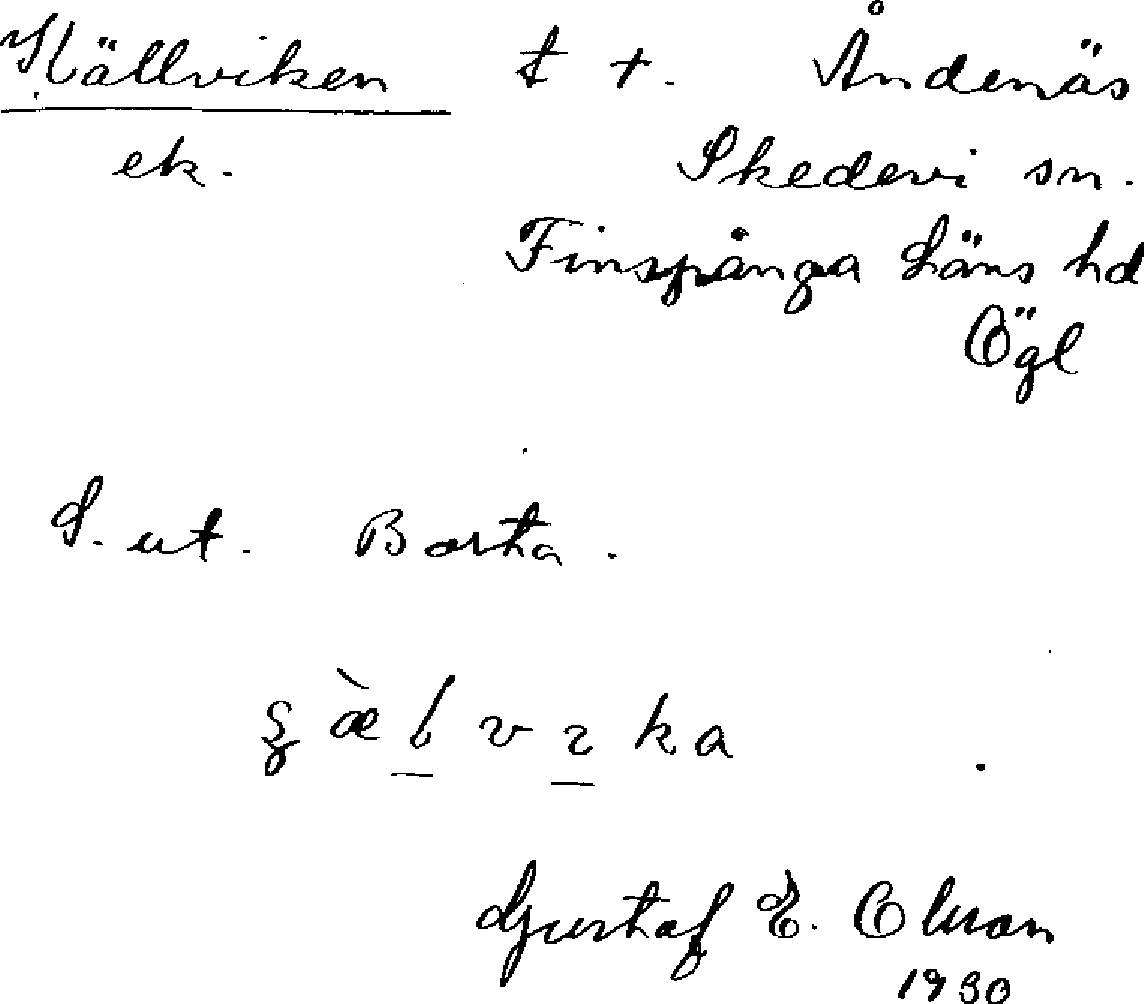 Källviken t +. Åndenäs
ek. Skedevi sn.
Finspånga Läns hd
Ögl
S. ut. Borta.
v ı k a
Gustaf E. Olsson
1930